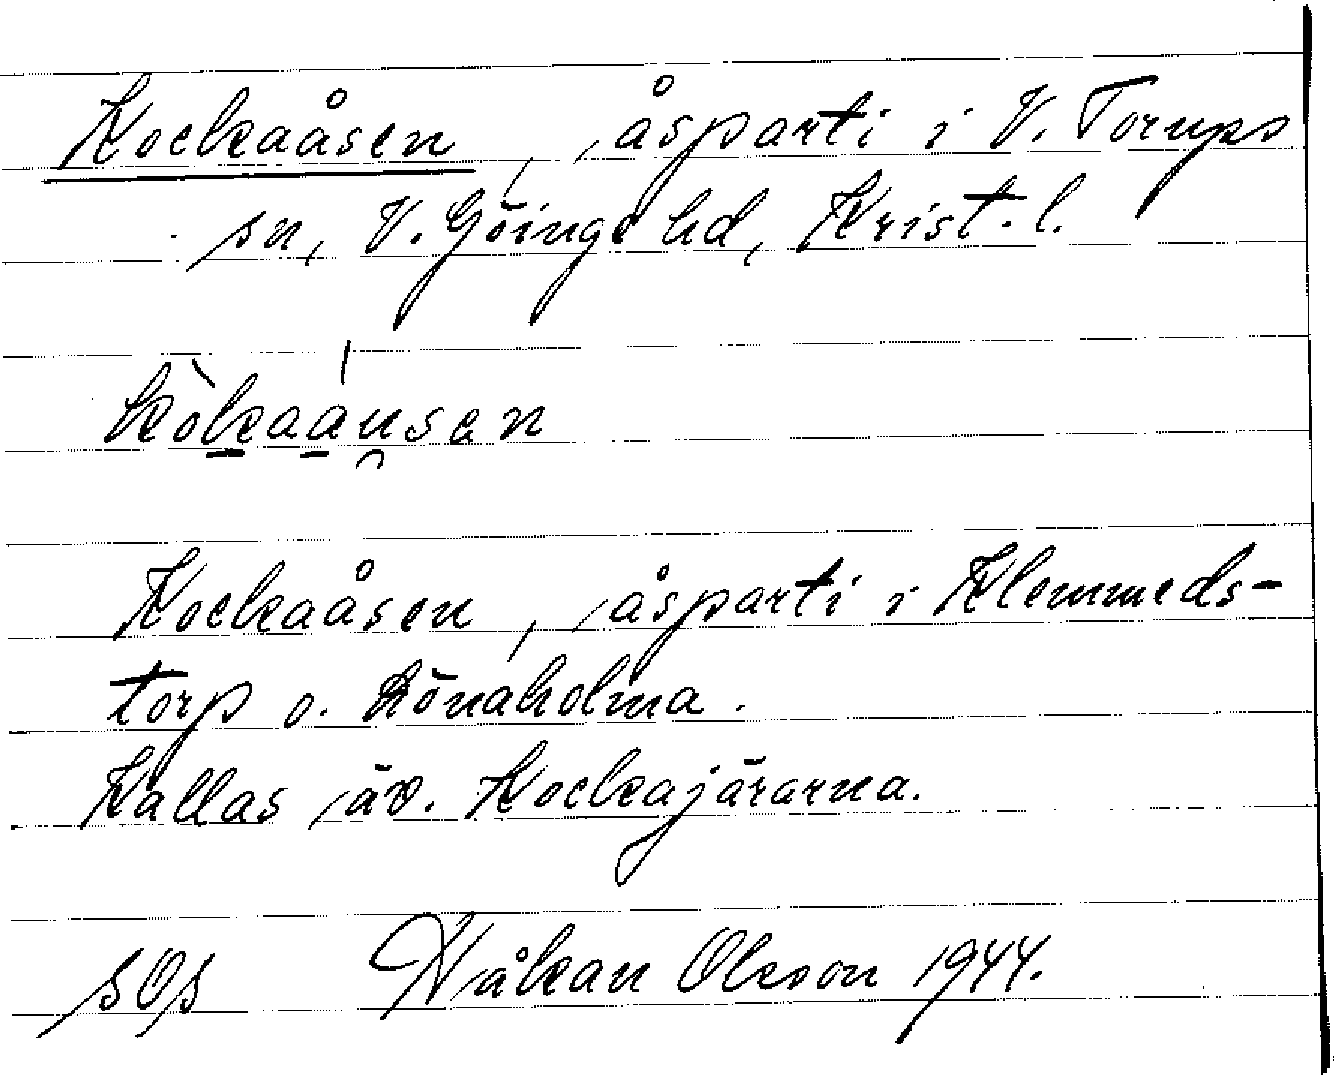 Kockaåsen, åsparti i V. Torups
sn, V. Göinge hd, Krist. l.
kòkaáusen
Kockaåsen, åsparti i Klemmeds-
torp o. Rönaholma.
Kallas äv. Kockajärarna.
sOs Håkan Olsson 1944.